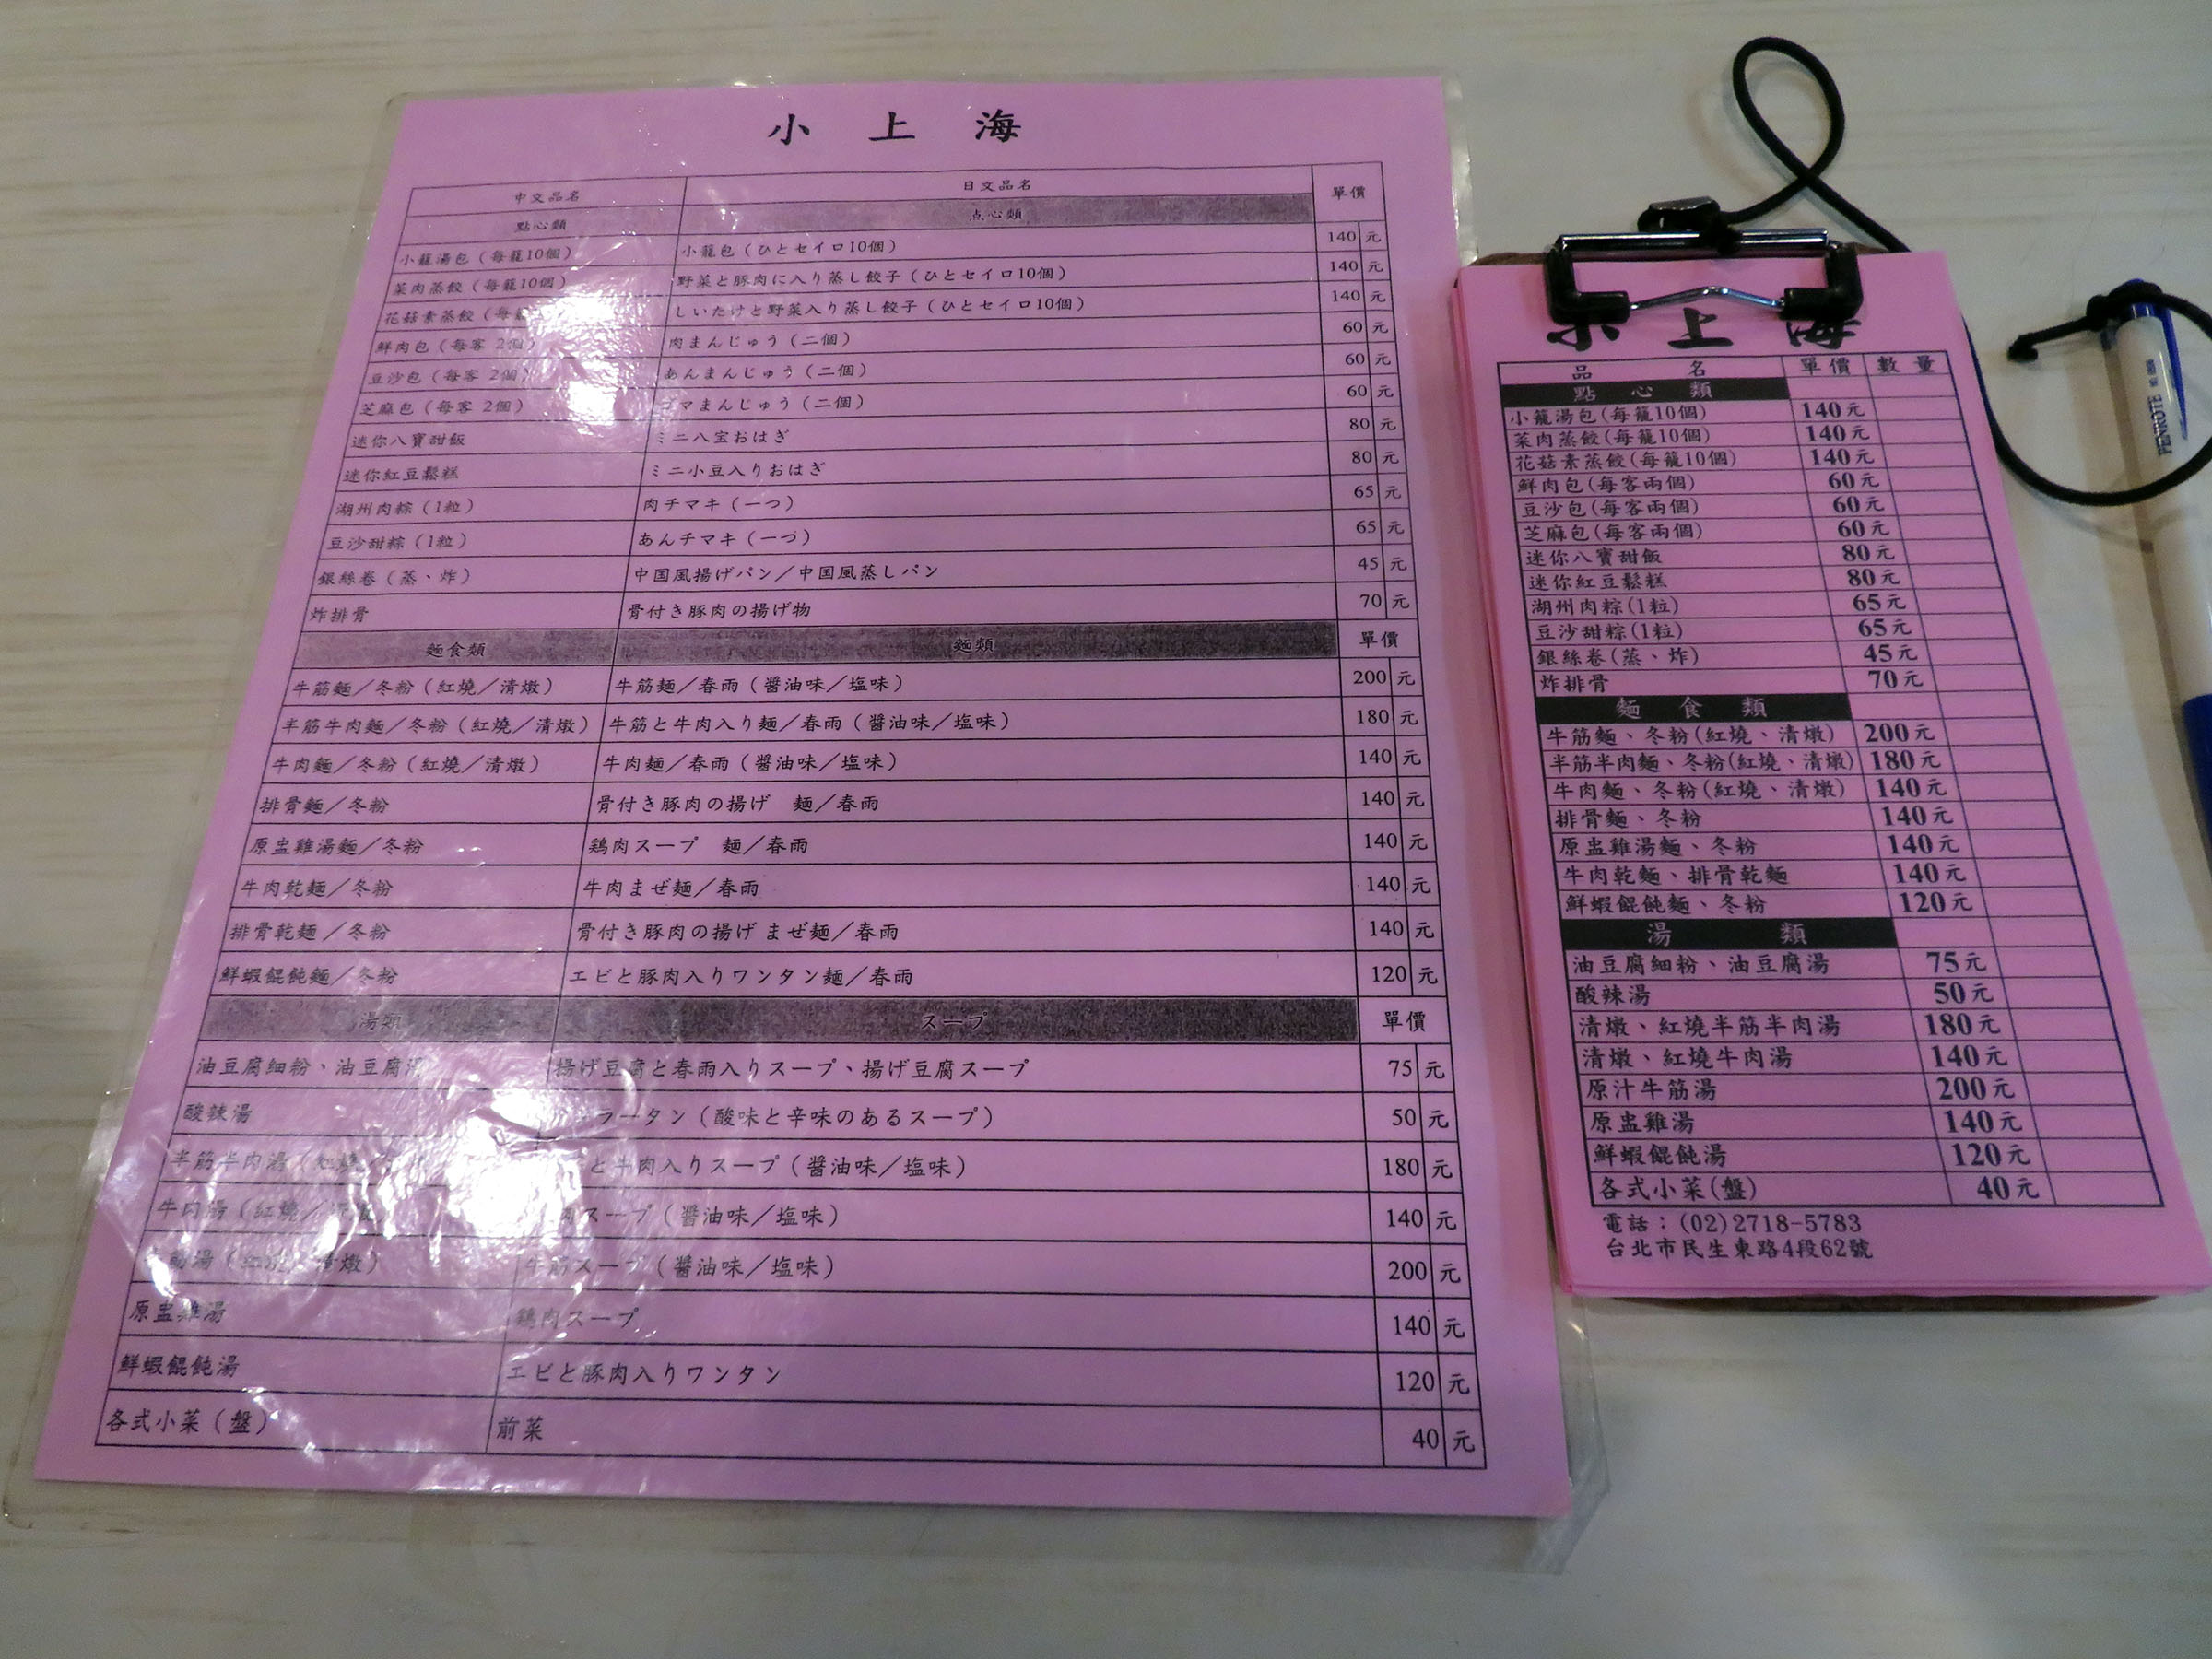 小 上 海
中文品名 日文品名 單價
點心類 点心類
小籠湯包（每籠10個） 小籠包（ひとセイロ10個） 140 元
菜肉蒸餃（每籠10個） 野菜と豚肉に入り蒸し餃子（ひとセイロ10個） 140 元
花菇素蒸餃（每 しいたけと野菜入り蒸し餃子（ひとセイロ10個） 140 元
鮮肉包（每客 2個） 肉まんじゅう（二個） 60 元
豆沙包（每客 2個） あんまんじゅう（二個） 60 元
芝麻包（每客 2個） ゴマまんじゅう（二個） 60 元
迷你八寶甜飯 ミニ八宝おはぎ 80 元
迷你紅豆鬆糕 ミニ小豆入りおはぎ 80 元
湖州肉粽（1粒） 肉チマキ（一つ） 65 元
豆沙甜粽（1粒） あんチマキ（一づ） 65 元
銀絲卷（蒸、炸） 中国風揚げパン／中国風蒸しパン 45 元
炸排骨 骨付き豚肉の揚げ物 70 元
麵食類 麵類 單價
牛筋麵／冬粉（紅燒／清燉） 牛筋麺／春雨（醬油味／塩味） 200 元
半筋牛肉麵／冬粉（紅燒／清燉） 牛筋と牛肉入り麺／春雨（醬油味／塩味） 180 元
牛肉麵／冬粉（紅燒／清燉） 牛肉麺／春雨（醬油味／塩味） 140 元
排骨麵／冬粉 骨付き豚肉の揚げ 麺／春雨 140 元
原盅雞湯麵／冬粉 鶏肉スープ 麺／春雨 140 元
牛肉乾麵／冬粉 牛肉まぜ麺／春雨 140 元
排骨乾麵／冬粉 骨付き豚肉の揚げ まぜ麺／春雨 140 元
鮮蝦餛飩麵／冬粉 エビと豚肉入りワンタン麺／春雨 120 元
湯類 スープ 單價
油豆腐細粉、油豆腐湯 揚げ豆腐と春雨入りスープ、揚げ豆腐スープ 75 元
酸辣湯 ラータン（酸味と辛味のあるスープ） 50 元
半筋半肉湯（紅燒／ と牛肉入りスープ（醬油味／塩味） 180 元
牛肉湯（紅燒／ 肉スープ（醬油味／塩味） 140 元
筋湯（紅燒／清燉） 牛筋スープ（醬油味／塩味） 200 元
原盅雞湯 鶏肉スープ 140 元
鮮蝦餛飩湯 エビと豚肉入りワンタン 120 元
各式小菜（盤） 前菜 40 元
小 上 海
品 名 單價 數量
點 心 類
小籠湯包(每籠10個) 140元
菜肉蒸餃(每籠10個) 140元
花菇素蒸餃(每籠10個) 140元
鮮肉包(每客兩個) 60元
豆沙包(每客兩個) 60元
芝麻包(每客兩個) 60元
迷你八寶甜飯 80元
迷你紅豆鬆糕 80元
湖州肉粽(1粒) 65元
豆沙甜粽(1粒) 65元
銀絲卷(蒸、炸) 45元
炸排骨 70元
麵 食 類
牛筋麵、冬粉(紅燒、清燉) 200元
半筋半肉麵、冬粉(紅燒、清燉) 180元
牛肉麵、冬粉(紅燒、清燉) 140元
排骨麵、冬粉 140元
原盅雞湯麵、冬粉 140元
牛肉乾麵、排骨乾麵 140元
鮮蝦餛飩麵、冬粉 120元
湯 類
油豆腐細粉、油豆腐湯 75元
酸辣湯 50元
清燉、紅燒半筋半肉湯 180元
清燉、紅燒牛肉湯 140元
原汁牛筋湯 200元
原盅雞湯 140元
鮮蝦餛飩湯 120元
各式小菜(盤) 40元
電話：(02)2718-5783
台北市民生東路4段62號
PENROTE